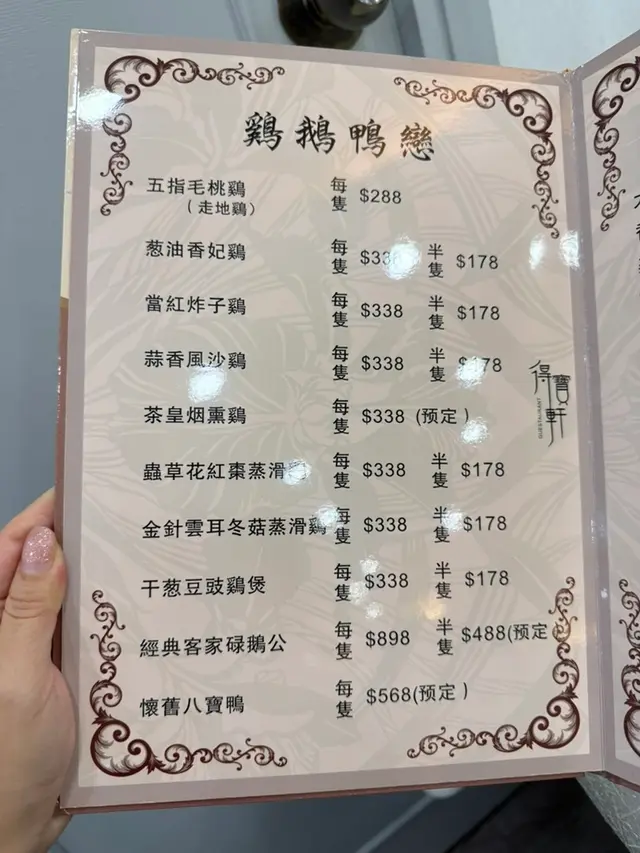 鷄鵝鴨戀
五指毛桃鷄 每隻 $288
（走地鷄）
葱油香妃鷄 每隻 $33 半隻 $178
當紅炸子鷄 每隻 $338 半隻 $178
蒜香風沙鷄 每隻 $338 半隻 $178
茶皇烟熏鷄 每隻 $338 (预定)
蟲草花紅棗蒸滑 每隻 $338 半隻 $178
金針雲耳冬菇蒸滑鷄 每隻 $338 半隻 $178
干葱豆豉鷄煲 每隻 $338 半隻 $178
經典客家碌鵝公 每隻 $898 半隻 $488(预定
懷舊八寶鴨 每隻 $568(预定)
得寶軒